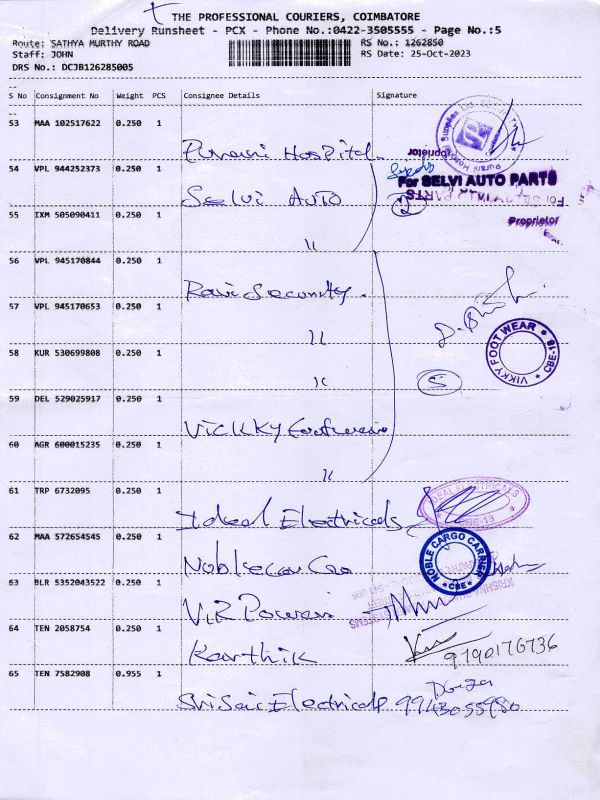 THE PROFESSIONAL COURIERS, COIMBATORE
Delivery Runsheet - PCX - Phone No.:0422-3505555 - Page No.:5
Route: SATHYA MURTHY ROAD RS No.: 1262850
Staff: JOHN RS Date: 25-Oct-2023
DRS No.: DCJB126285005
S No Consignment No Weight PCS Consignee Details Signature
53 MAA 102517622 0.250 1
Purani Hospital
54 VPL 944252373 0.250 1
Selvi Auto
For SELVI AUTO PARTS
2
Proprietor
55 IXM 505090411 0.250 1
"
56 VPL 945170844 0.250 1
Ravi Security.
57 VPL 945170653 0.250 1
"
VIKKY FOOT WEAR CBE-18
58 KUR 530699808 0.250 1
"
5
59 DEL 529025917 0.250 1
Vickky Footwear
60 AGR 600015235 0.250 1
"
61 TRP 6732095 0.250 1
Ideal Electricals
IDEAL ELECTRICALS CBE-18
62 MAA 572654545 0.250 1
Noble
NOBLE CARGO CARRIER CBE
63 BLR 5352043522 0.250 1
VIR
64 TEN 2058754 0.250 1
Karthik
9790176736
65 TEN 7582908 0.955 1
Sri Sai Electrical 9943055980